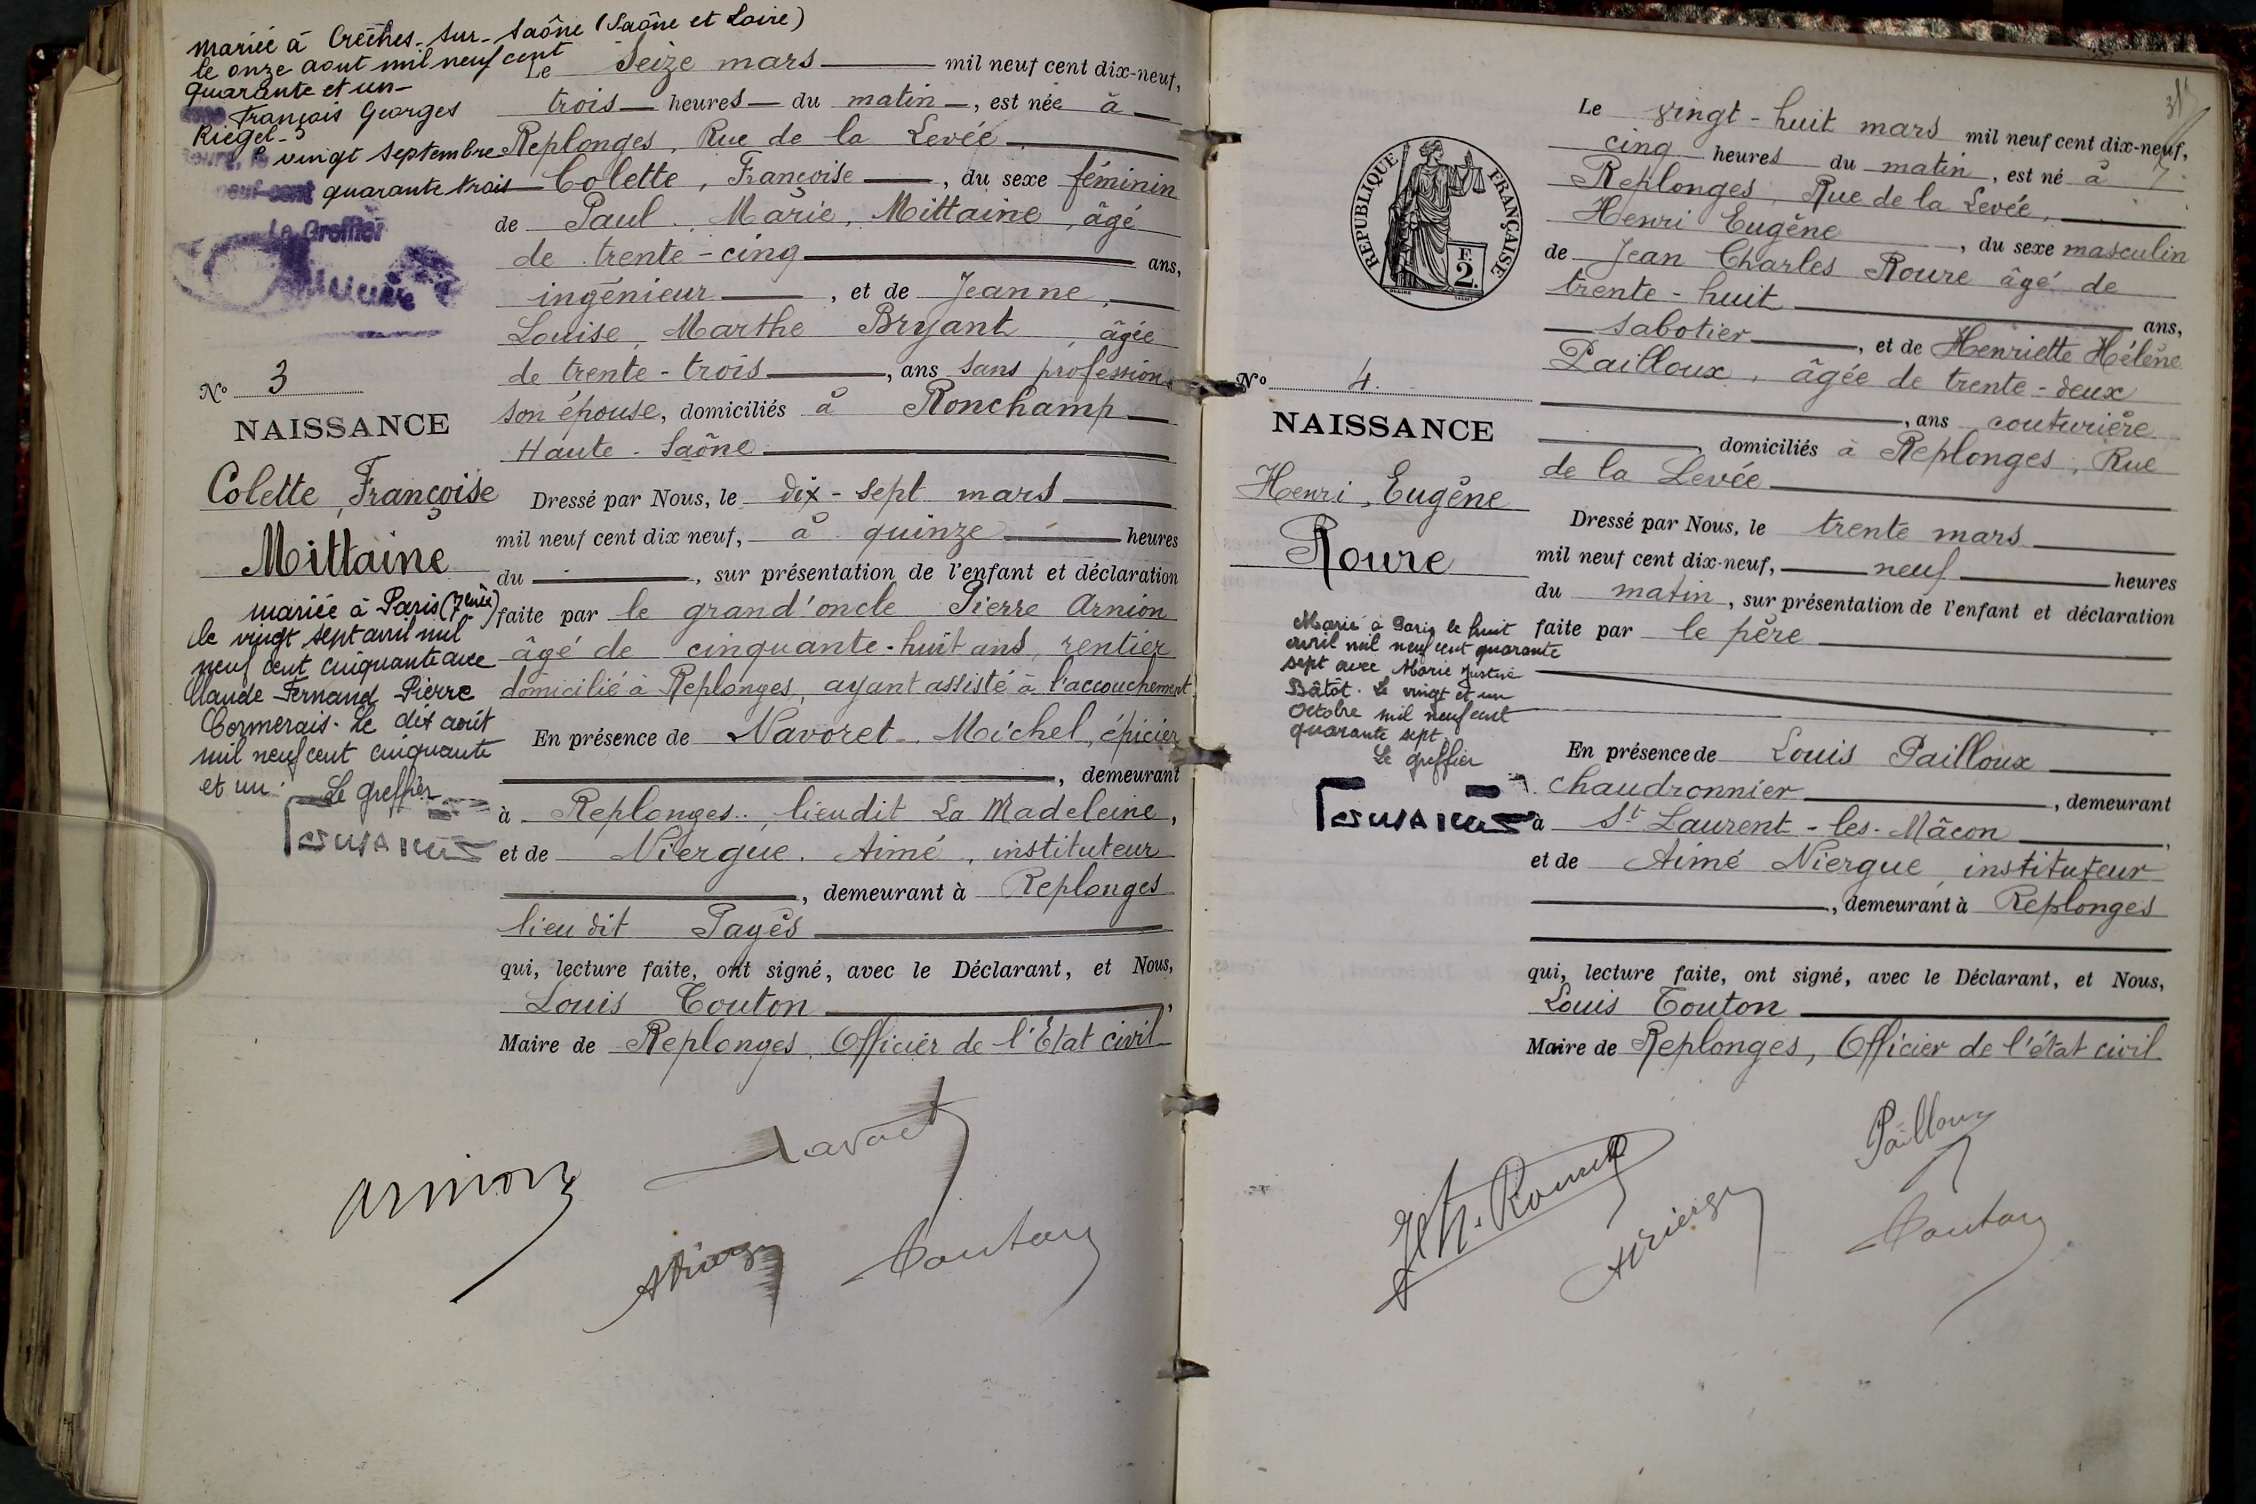 mariée à Crêches-sur-Saône (Saône et Loire)
le onze aout mil neuf cent
quarante et un
François Georges
Riegel
vingt septembre
neuf cent quarante trois
Le Greffier
Le Seize mars mil neuf cent dix-neuf,
trois heures du matin, est née à
Replonges, Rue de la Levée
Colette, Françoise, du sexe féminin
de Paul, Marie, Mittaine, âgé
de trente-cinq ans,
ingénieur, et de Jeanne,
Louise, Marthe Bryant, âgée
de trente-trois, ans sans profession
son épouse, domiciliés à Ronchamp
Haute-Saône
No 3
NAISSANCE
Colette, Françoise
Mittaine
mariée à Paris (7ème)
le vingt sept avril mil
neuf cent cinquante avec
Claude Fernand Pierre
Cormerais. Le dix août
mil neuf cent cinquante
et un. Le greffier
Dressé par Nous, le dix-sept mars
mil neuf cent dix neuf, à quinze heures
du, sur présentation de l'enfant et déclaration
faite par le grand'oncle Pierre Arnion
âgé de cinquante-huit ans, rentier
domicilié à Replonges, ayant assisté à l'accouchement.
En présence de Navoret Michel, épicier
, demeurant
à Replonges, lieudit La Madeleine,
et de Niergue, Aimé, instituteur
, demeurant à Replonges
lieu dit Pagès
qui, lecture faite, ont signé, avec le Déclarant, et Nous,
Louis Touton,
Maire de Replonges, Officier de l'Etat civil
Arnion
Navoret
Niergue
Touton
Le vingt-huit mars mil neuf cent dix-neuf,
cinq heures du matin, est né à
Replonges, Rue de la Levée,
Henri Eugène, du sexe masculin
de Jean Charles Roure âgé de
trente-huit ans,
sabotier, et de Henriette Hélène
Pailloux, âgée de trente-deux
, ans couturière
, domiciliés à Replonges, Rue
de la Levée
REPUBLIQUE FRANÇAISE
F.
2.
No 4.
NAISSANCE
Henri, Eugène
Roure
Marié à Paris le huit
avril mil neuf cent quarante
sept avec Marie Justine
Bâtôt. Le vingt et un
Octobre mil neuf cent
quarante sept.
Le greffier
Dressé par Nous, le trente mars
mil neuf cent dix-neuf, neuf heures
du matin, sur présentation de l'enfant et déclaration
faite par le père
En présence de Louis Pailloux
chaudronnier, demeurant
à St Laurent-les-Mâcon,
et de Aimé Niergue, instituteur
, demeurant à Replonges
qui, lecture faite, ont signé, avec le Déclarant, et Nous,
Louis Touton
Maire de Replonges, Officier de l'état civil
Pailloux
Roure
Niergue
Touton